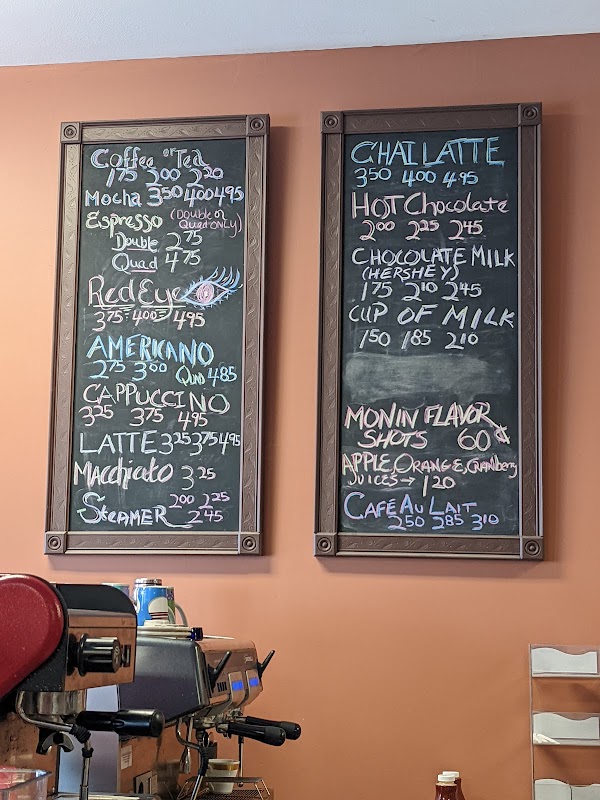 Coffee or Tea
175 300 220
Mocha 350 400 495
Espresso (Double or
Quad only)
Double 275
Quad 475
Red Eye
375 400 495
AMERICANO
275 300 Quad 485
CAPPUCCINO
325 375 495
LATTE 325 375 495
Macchiato 325
STEAMER 200 225
245
CHAI LATTE
350 400 495
HOT Chocolate
200 225 245
CHOCOLATE MILK
(HERSHEY)
175 210 245
CUP OF MILK
150 185 210
MONIN FLAVOR
SHOTS 60¢
APPLE, ORANGE, Cranberry
JUICES → 120
CAFE AU LAIT
250 285 310